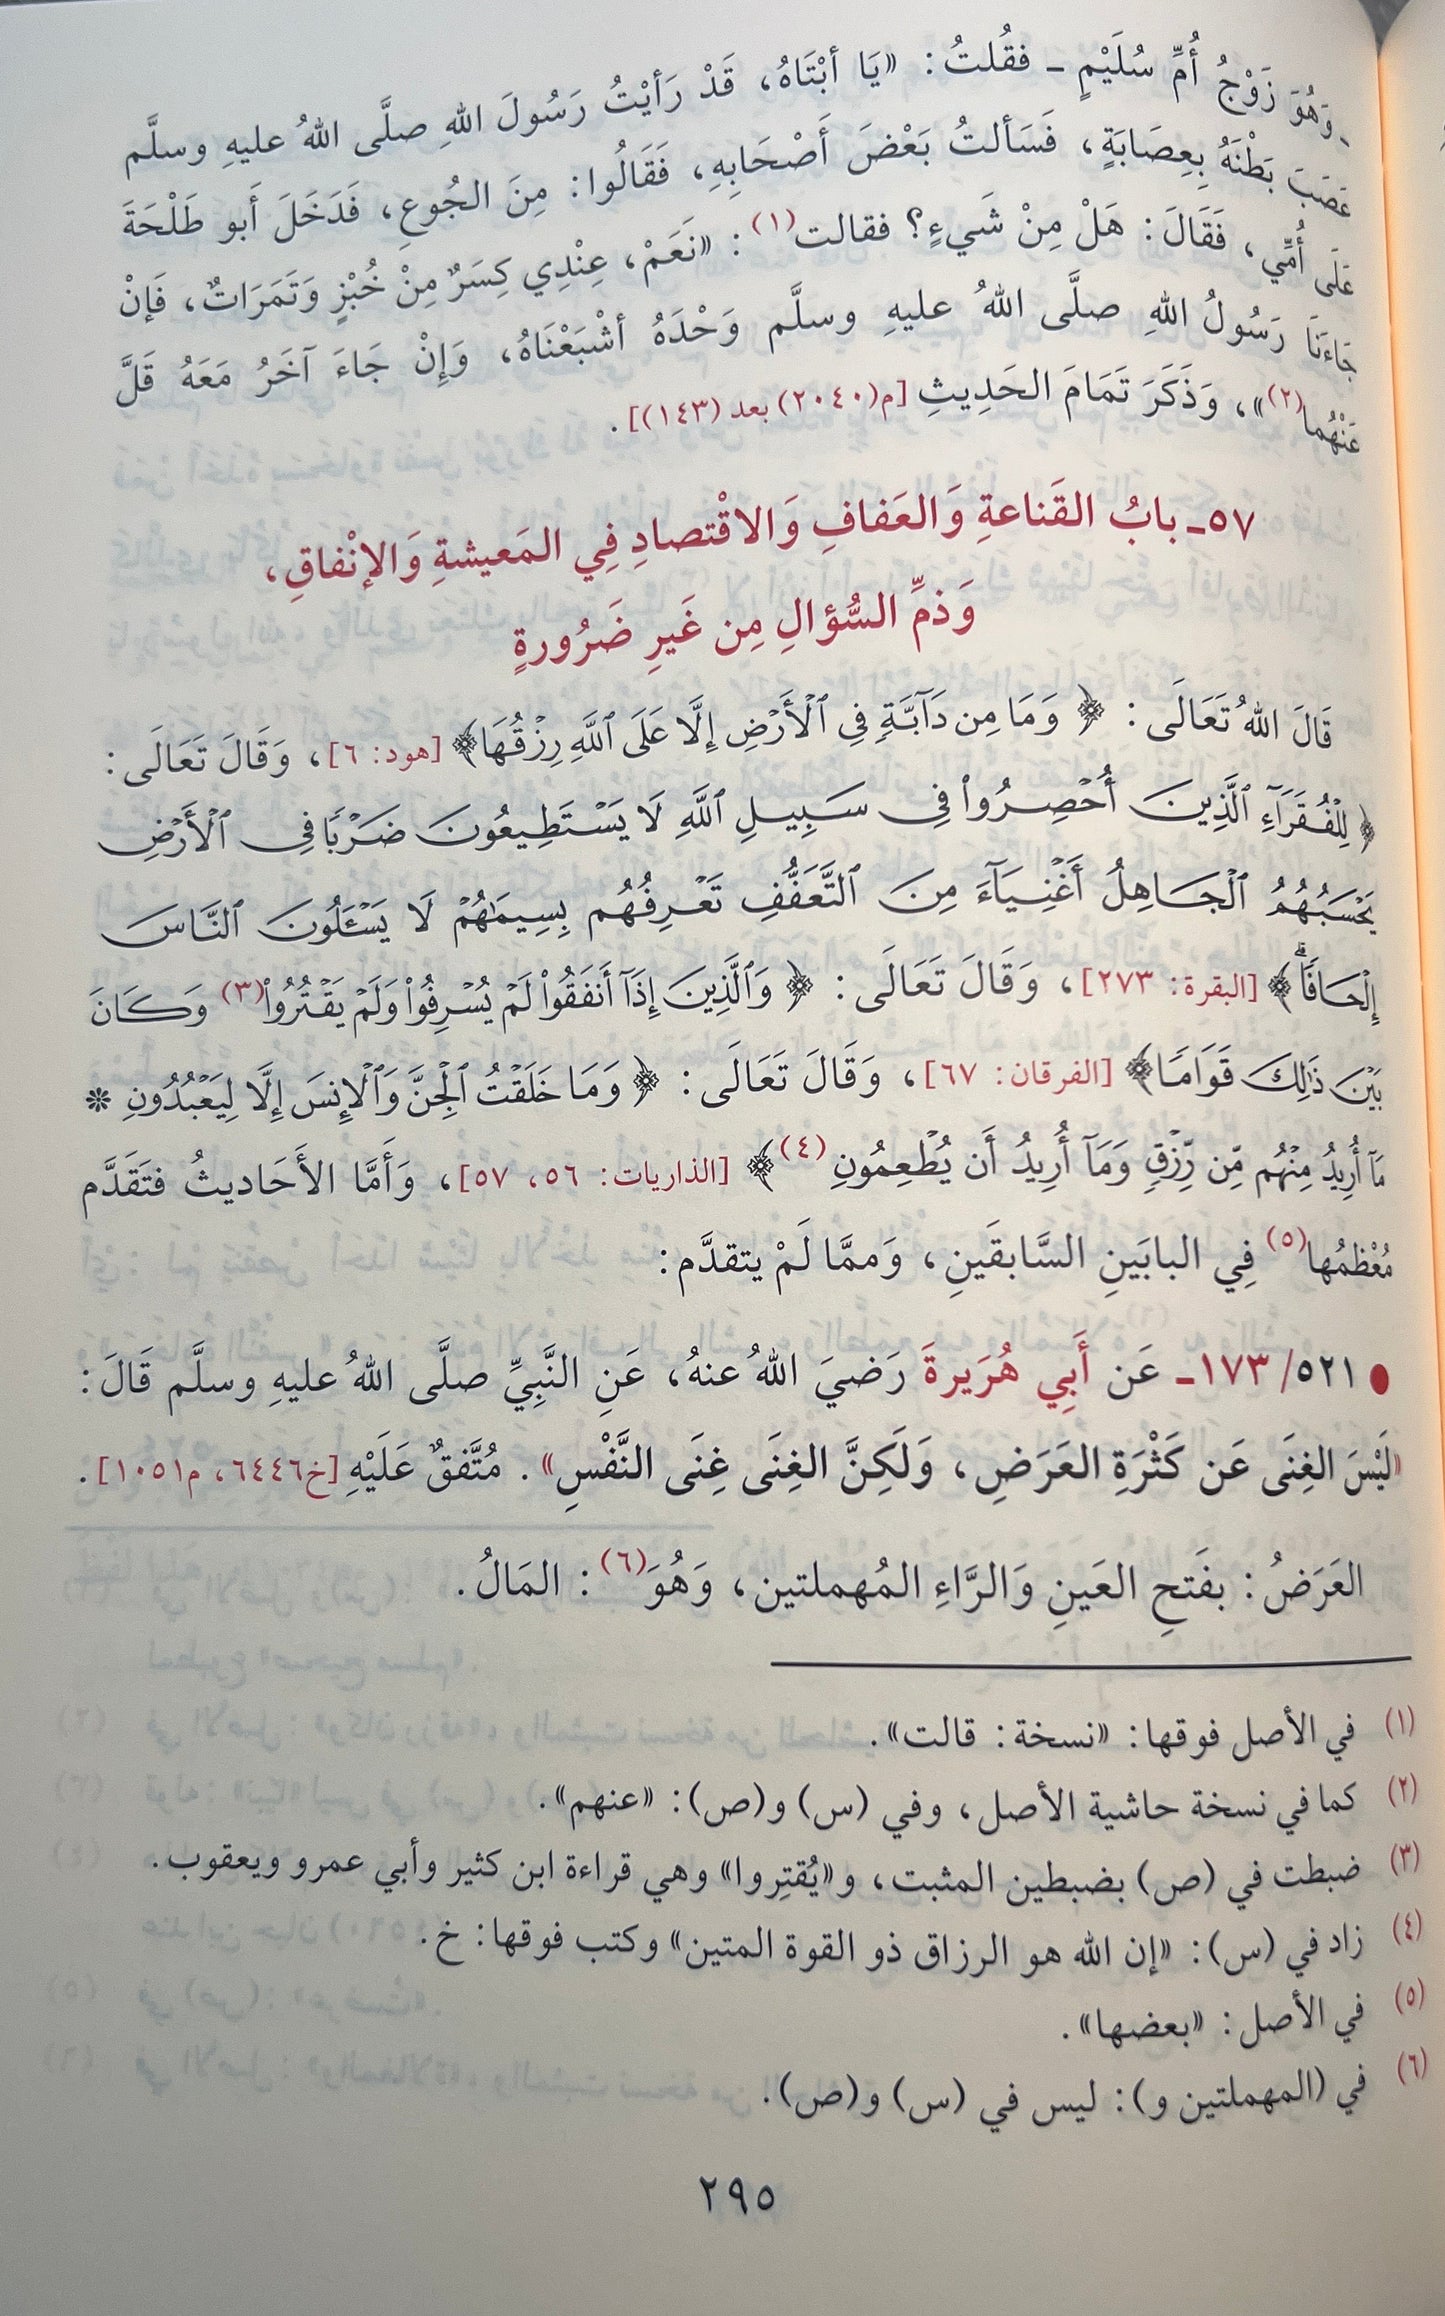 ـ وَهُوَ زَوْجُ أُمِّ سُلَيْمٍ ـ فقُلتُ: «يَا أبْتَاهُ، قَدْ رَأيْتُ رَسُولَ اللهِ صلَّى اللهُ عليهِ وسلَّم
عَصَبَ بَطْنَهُ بِعِصَابَةٍ، فَسَألتُ بَعْضَ أَصْحَابِهِ، فَقَالُوا: مِنَ الجُوعِ، فَدَخَلَ أَبو طَلْحَةَ
عَلَى أُمِّي، فَقَالَ: هَلْ مِنْ شَيءٍ؟ فقالت(١): «نَعَمْ، عِنْدِي كِسَرٌ مِنْ خُبْزٍ وَتَمَرَاتٌ، فَإنْ
جَاءَنَا رَسُولُ اللهِ صلَّى اللهُ عليهِ وسلَّم وَحْدَهُ أشْبَعْنَاهُ، وَإِنْ جَاءَ آخَرُ مَعَهُ قَلَّ
عَنْهُما(٢)»، وَذَكَرَ تَمَامَ الحَدِيثِ [م(٢٠٤٠) بعد (١٤٣)].
٥٧ـ بابُ القَناعةِ وَالعَفافِ وَالاقْتصادِ فِي المَعيشةِ وَالإنْفاقِ،
وَذمِّ السُّؤالِ مِن غَيرِ ضَرُورةٍ
قَالَ اللهُ تَعَالَى: ﴿وَمَا مِن دَآبَّةٍ فِي ٱلْأَرْضِ إِلَّا عَلَى ٱللَّهِ رِزْقُهَا﴾ [هود: ٦]، وَقَالَ تَعَالَى:
﴿لِلْفُقَرَآءِ ٱلَّذِينَ أُحْصِرُوا۟ فِى سَبِيلِ ٱللَّهِ لَا يَسْتَطِيعُونَ ضَرْبًا فِى ٱلْأَرْضِ
يَحْسَبُهُمُ ٱلْجَاهِلُ أَغْنِيَآءَ مِنَ ٱلتَّعَفُّفِ تَعْرِفُهُم بِسِيمَـٰهُمْ لَا يَسْـَٔلُونَ ٱلنَّاسَ
إِلْحَافًا ۗ﴾ [البقرة: ٢٧٣]، وَقَالَ تَعَالَى: ﴿وَٱلَّذِينَ إِذَآ أَنفَقُوا۟ لَمْ يُسْرِفُوا۟ وَلَمْ يَقْتُرُوا۟(٣) وَكَانَ
بَيْنَ ذَٰلِكَ قَوَامًا﴾ [الفرقان: ٦٧]، وَقَالَ تَعَالَى: ﴿وَمَا خَلَقْتُ ٱلْجِنَّ وَٱلْإِنسَ إِلَّا لِيَعْبُدُونِ *
مَآ أُرِيدُ مِنْهُم مِّن رِّزْقٍ وَمَآ أُرِيدُ أَن يُطْعِمُونِ(٤)﴾ [الذاريات: ٥٦، ٥٧]، وَأَمَّا الأَحَاديثُ فتَقَدَّم
مُعْظمُها(٥) فِي البابَينِ السَّابقَينِ، وَممَّا لَمْ يتقدَّم:
● ٥٢١/ ١٧٣ـ عَن أَبِي هُرَيرةَ رَضيَ اللهُ عنهُ، عَنِ النَّبيِّ صلَّى اللهُ عليهِ وسلَّم قَالَ:
«لَيْسَ الغِنَى عَن كَثْرَةِ العَرَضِ، وَلَكِنَّ الغِنَى غِنَى النَّفْسِ». مُتَّفقٌ عَلَيْهِ [خ٦٤٤٦، م١٠٥١].
العَرَضُ: بفَتحِ العَينِ وَالرَّاءِ المُهملتين، وَهُوَ(٦): المَالُ.
(١) في الأصل فوقها: «نسخة: قالت».
(٢) كما في نسخة حاشية الأصل، وفي (س) و(ص): «عنهم».
(٣) ضبطت في (ص) بضبطين المثبت، و«يُقتِروا» وهي قراءة ابن كثير وأبي عمرو ويعقوب.
(٤) زاد في (س): «إن الله هو الرزاق ذو القوة المتين» وكتب فوقها: خ.
(٥) في الأصل: «بعضها».
(٦) في (المهملتين و): ليس في (س) و(ص).
٢٩٥